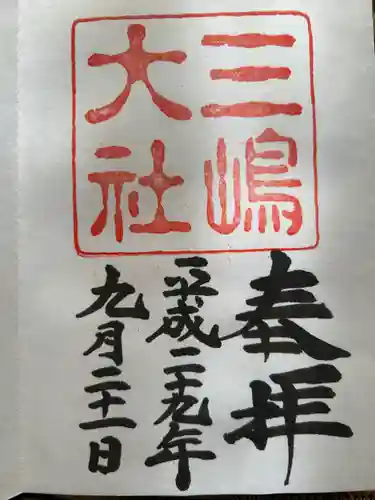 三嶋
大社
奉拝
平成二十九年
九月二十一日